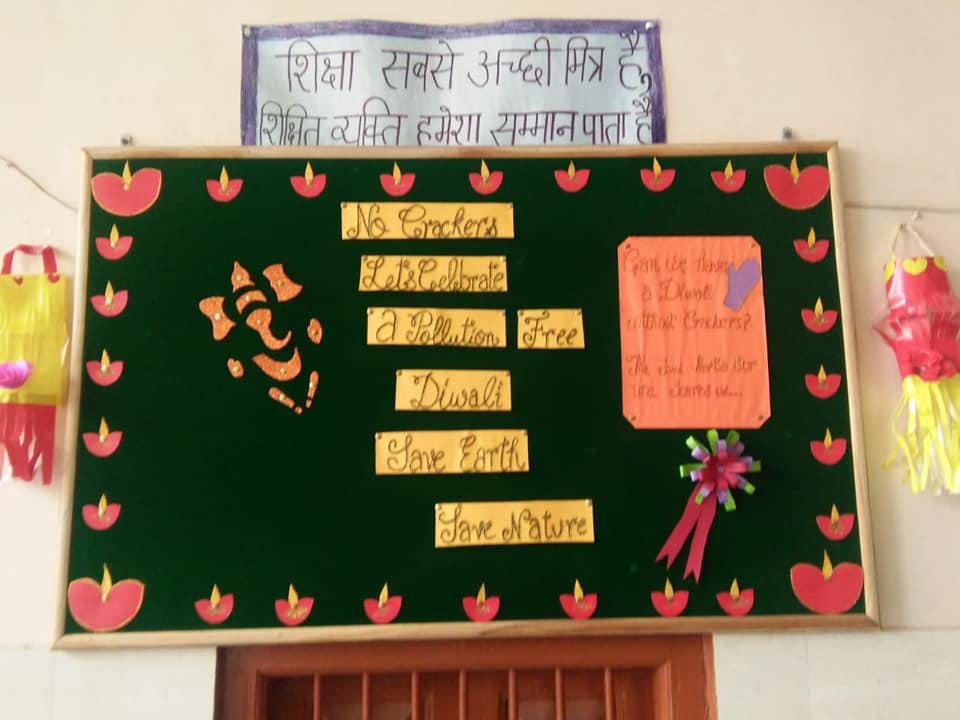 शिक्षा सबसे अच्छी मित्र है,
शिक्षित व्यक्ति हमेशा सम्मान पाता है
No Crackers
Let's Celbrate
a Pollution Free
Diwali
Save Earth
Save Nature
Can we have
a Diwali
without Crackers?
The
and scares us...